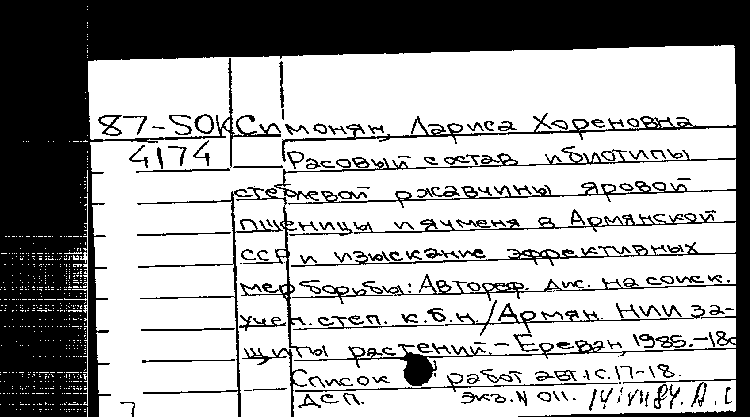 87-5OK Симонян, Лариса Хореновна
4174 Расовый состав и биотипы
стеблевой ржавчины яровой
пшеницы и ячменя в Армянской
ССР и изыскание эффективных
мер борьбы: Автореф. дис. на соиск.
учен. степ. к.б.н. / Армян. НИИ за-
щиты растений. - Ереван, 1985. - 18с
Список работ авт: с. 17-18.
ДСП. Экз. N 011.